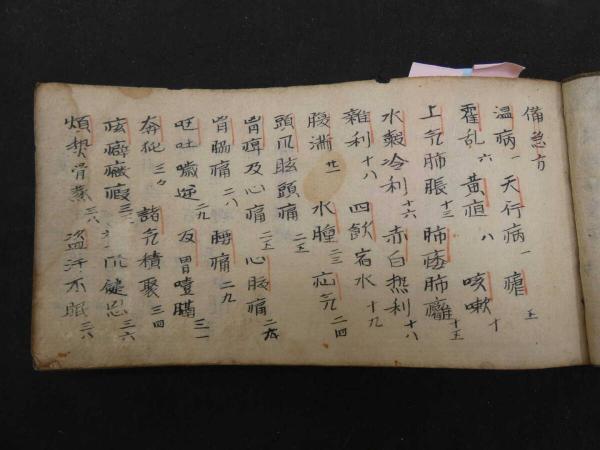 備急方
温病一 天行病一 瘧五
霍乱六 黄疸八 咳嗽十
上気肺脹十三 肺痿肺癰十五
水穀冷利十六 赤白热利十八
雜利十八 四飲宿水十九
脹満廿一 水腫二三 疝気二四
頭爪眩頭痛二五
胃痺及心痛二五 心腹痛二九
胃腸痛二八 腰痛二九
呕吐噦逆二九 反胃噎膈三一
奔㹠三々 諸気積聚三四
痃癖癥瘕三 健忘三六
煩热骨蒸三六 盗汗不眠三六